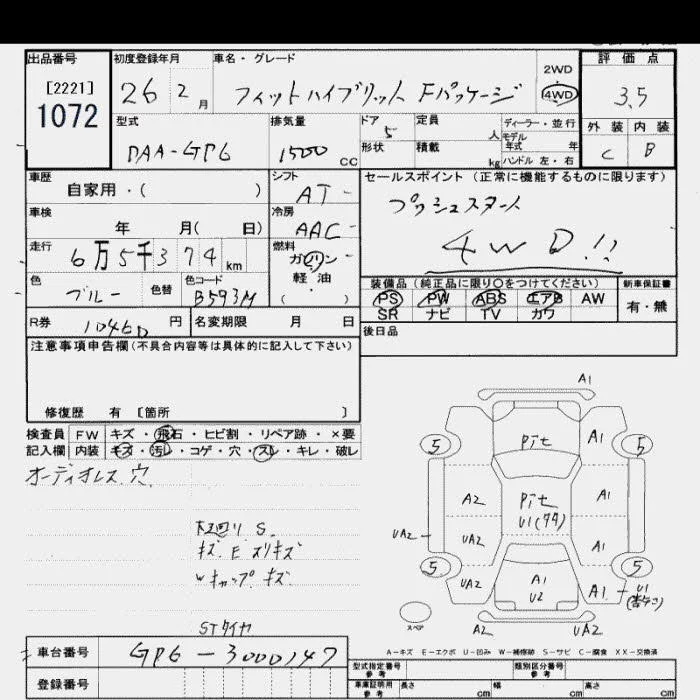 出品番号 初度登録年月 車名・グレード 2WD 評価点
[2221] 26 2月 フィットハイブリット Fパッケージ 4WD 3.5
1072
型式 排気量 ドア 5 定員 人 ディーラー・並行 モデル 年式 年 外装 内装
DAA-GP6 1500 CC 形状 積載 kg ハンドル 左・右 C B
車歴 シフト セールスポイント (正常に機能するものに限ります)
自家用・( ) AT プッシュスタート
車検 年 月( 日) 冷房 AAC 4WD!!
走行 6万5千374km 燃料 ガソリン・軽油 ( )
色 ブルー 色替 色コード B593M
装備品(純正品に限り○をつけてください) 新車保証書
PS PW ABS エアB AW 有・無
SR ナビ TV カワ
R券 10460円 名変期限 月 日 後日品
注意事項申告欄(不具合内容等は具体的に記入して下さい)
修復歴 有 [箇所 ]
検査員 FW キズ・飛石・ヒビ割・リペア跡・×要
記入欄 内装 キズ・汚レ・コゲ・穴・スレ・キレ・破レ
オーディオレス、穴
キズ E スリキズ
Wキャップ キズ
STタイヤ
A1
5 Pit A1 5
A2 Pit A1
U1
UA2 UA2 A1
5 UA2 A1 U2 A1 U1 5
スペア A2 UA2
A-キズ E-エクボ U-凹み W-補修跡 S-サビ C-腐食 XX-交換済
車台番号 GP6-3000147
登録番号
型式指定番号 参考 類別区分番号 参考
車庫証明用 参考 長さ cm 幅 cm 高さ cm